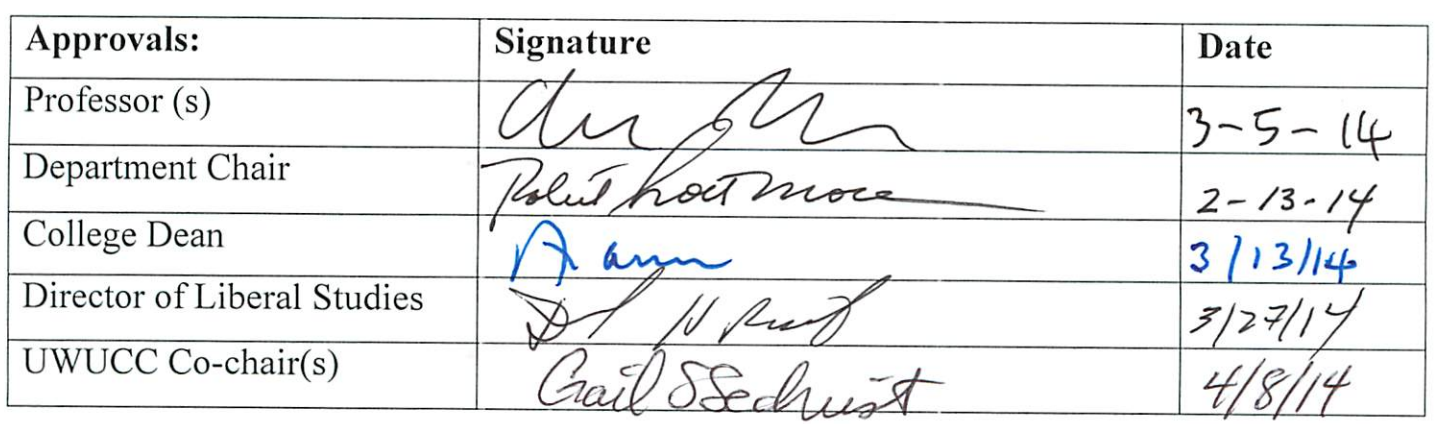 Approvals: Signature Date
Professor (s) 3-5-14
Department Chair Robert 2-13-14
College Dean 3/13/14
Director of Liberal Studies 3/27/14
UWUCC Co-chair(s) Gail S Sechrist 4/8/14